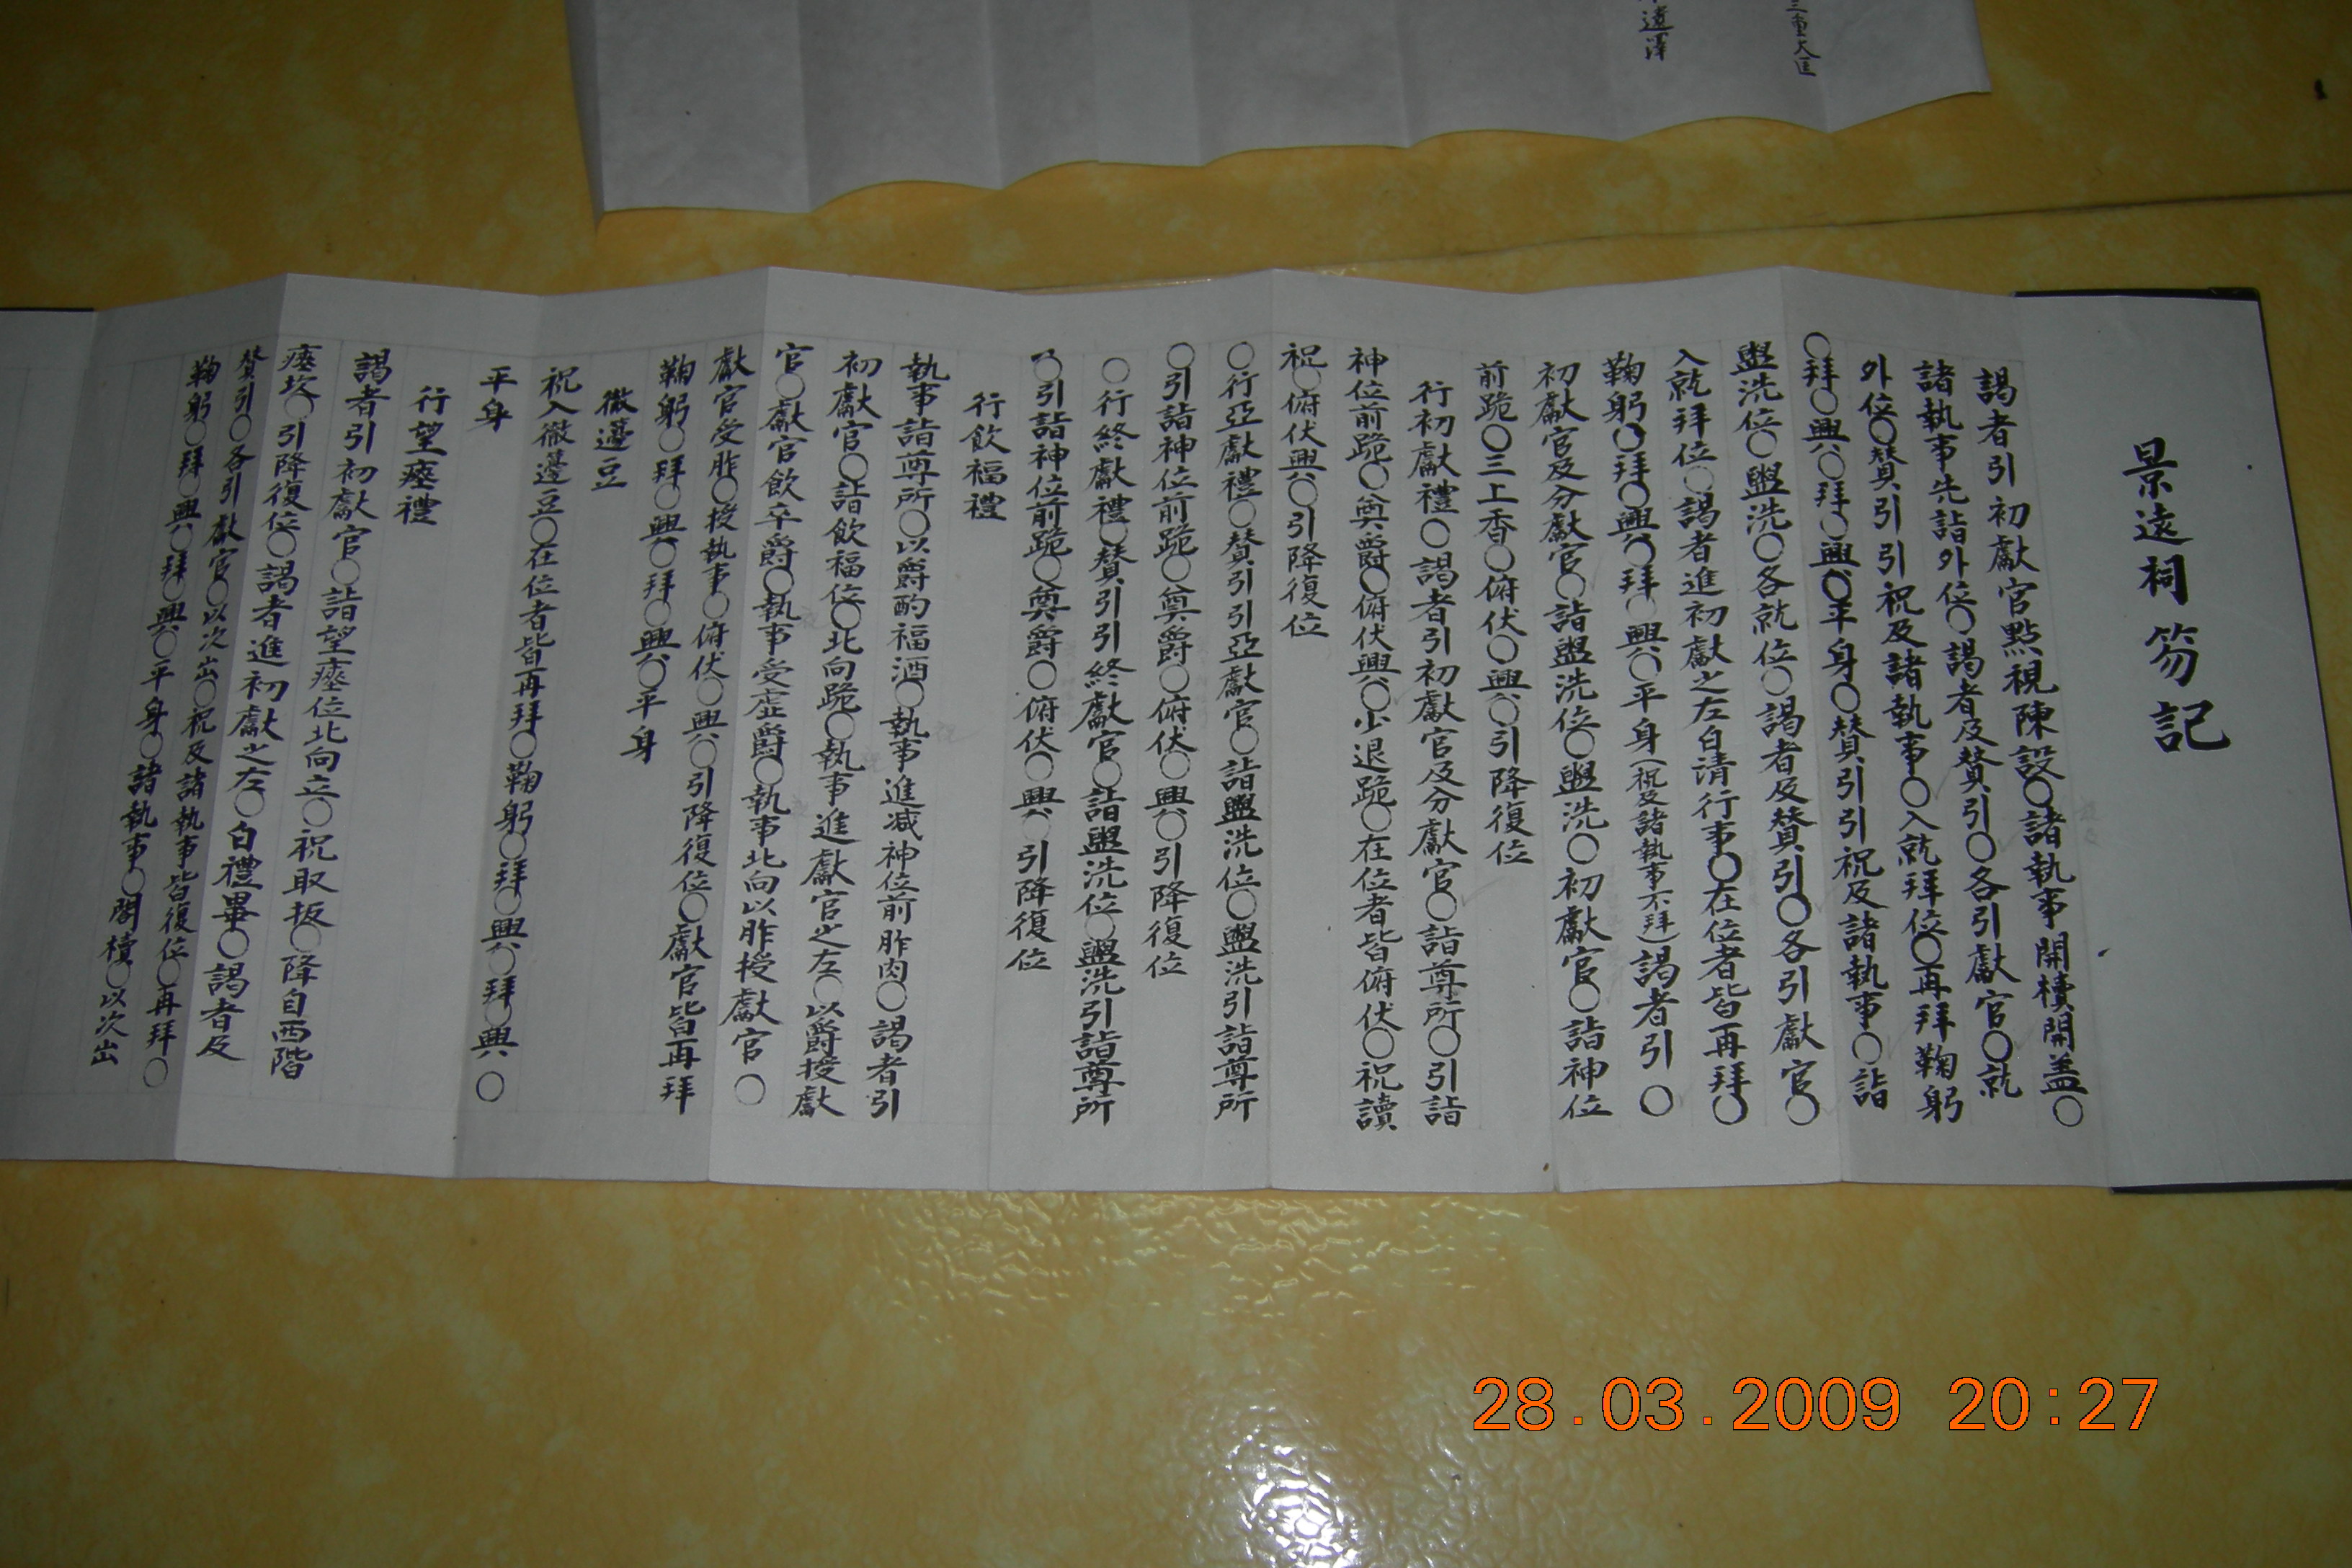 遠澤
三重大匡
景遠祠笏記
謁者引初獻官點視陳設○諸執事開櫝開盖○
諸執事先詣外位○謁者及賛引○各引獻官○就
外位○賛引引祝及諸執事○入就拜位○再拜鞠躬
○拜○興○拜○興○平身○賛引引祝及諸執事○詣
盥洗位○盥洗○各就位○謁者及賛引○各引獻官○
入就拜位○謁者進初獻之左白請行事○在位者皆再拜○
鞠躬○拜○興○拜○興○平身(祝及諸執事不拜)謁者引○
初獻官及分獻官○詣盥洗位○盥洗○初獻官○詣神位
前跪○三上香○俯伏○興○引降復位
行初獻禮○謁者引初獻官及分獻官○詣尊所○引詣
神位前跪○奠爵○俯伏興○少退跪○在位者皆俯伏○祝讀
祝○俯伏興○引降復位
○行亞獻禮○賛引引亞獻官○詣盥洗位○盥洗引詣尊所
○引詣神位前跪○奠爵○俯伏○興○引降復位
○行終獻禮○賛引引終獻官○詣盥洗位○盥洗引詣尊所
○引詣神位前跪○奠爵○俯伏○興○引降復位
行飮福禮
執事詣尊所○以爵酌福酒○執事進减神位前胙肉○謁者引
初獻官○詣飮福位○北向跪○執事進獻官之左○以爵授獻
官○獻官飮卒爵○執事受虛爵○執事北向以胙授獻官○
獻官受胙○授執事○俯伏○興○引降復位○獻官皆再拜
鞠躬○拜○興○拜○興○平身
徹籩豆
祝入徹籩豆○在位者皆再拜○鞠躬○拜○興○拜○興○
平身
行望瘞禮
謁者引初獻官○詣望瘞位北向立○祝取板○降自西階
瘞坎○引降復位○謁者進初獻之左○白禮畢○謁者及
賛引○各引獻官○以次出○祝及諸執事皆復位○再拜○
鞠躬○拜○興○拜○興○平身○諸執事○閤櫝○以次出
28.03.2009 20:27